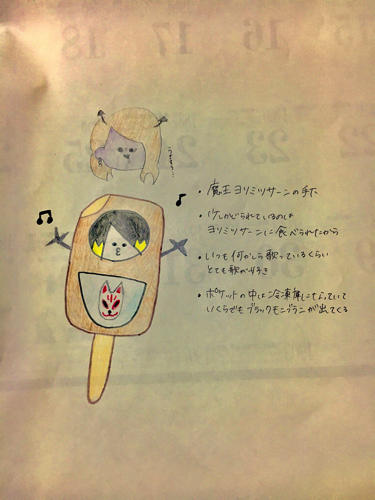 うるさい…
・魔王ヨリミツサーンの手下
・少しかじられているのは
ヨリミツサーンに食べられたから
・いつも何かしら歌っているくらい
とても歌が好き
・ポケットの中は冷凍庫になっていて
いくらでもブラックモンブランが出てくる